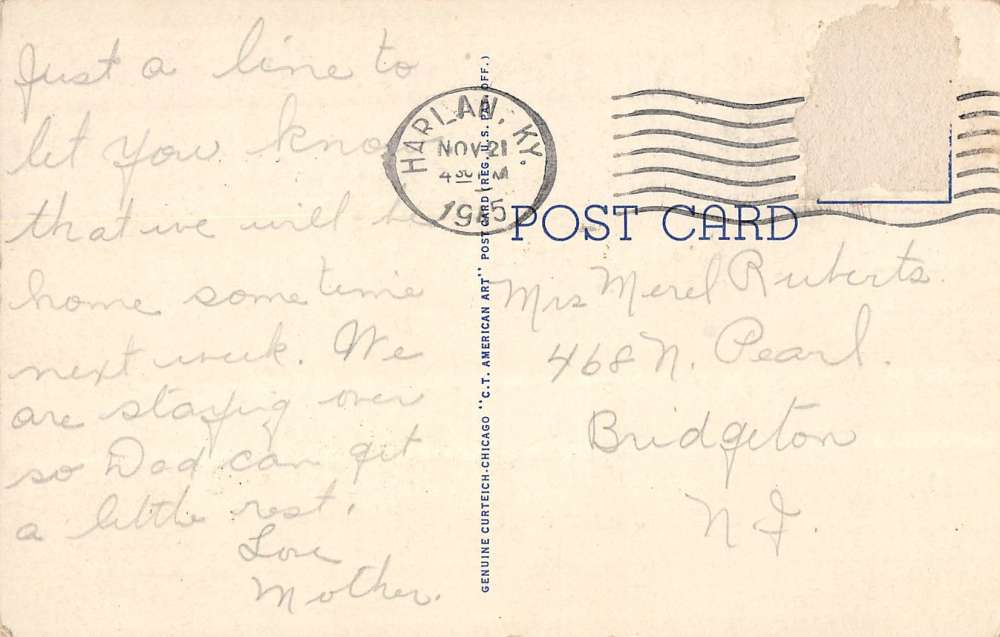 Just a line to
let you know
that we will be
home sometime
next week. We
are staying over
so Dad can get
a little rest.
Love
Mother.
HARLAN, KY.
NOV 21
4 PM
1945
GENUINE CURTEICH-CHICAGO "C.T. AMERICAN ART" POST CARD (REG. U.S. PAT. OFF.)
POST CARD
Mrs Merel Ruberts.
468 N. Pearl.
Bridgeton
N J.